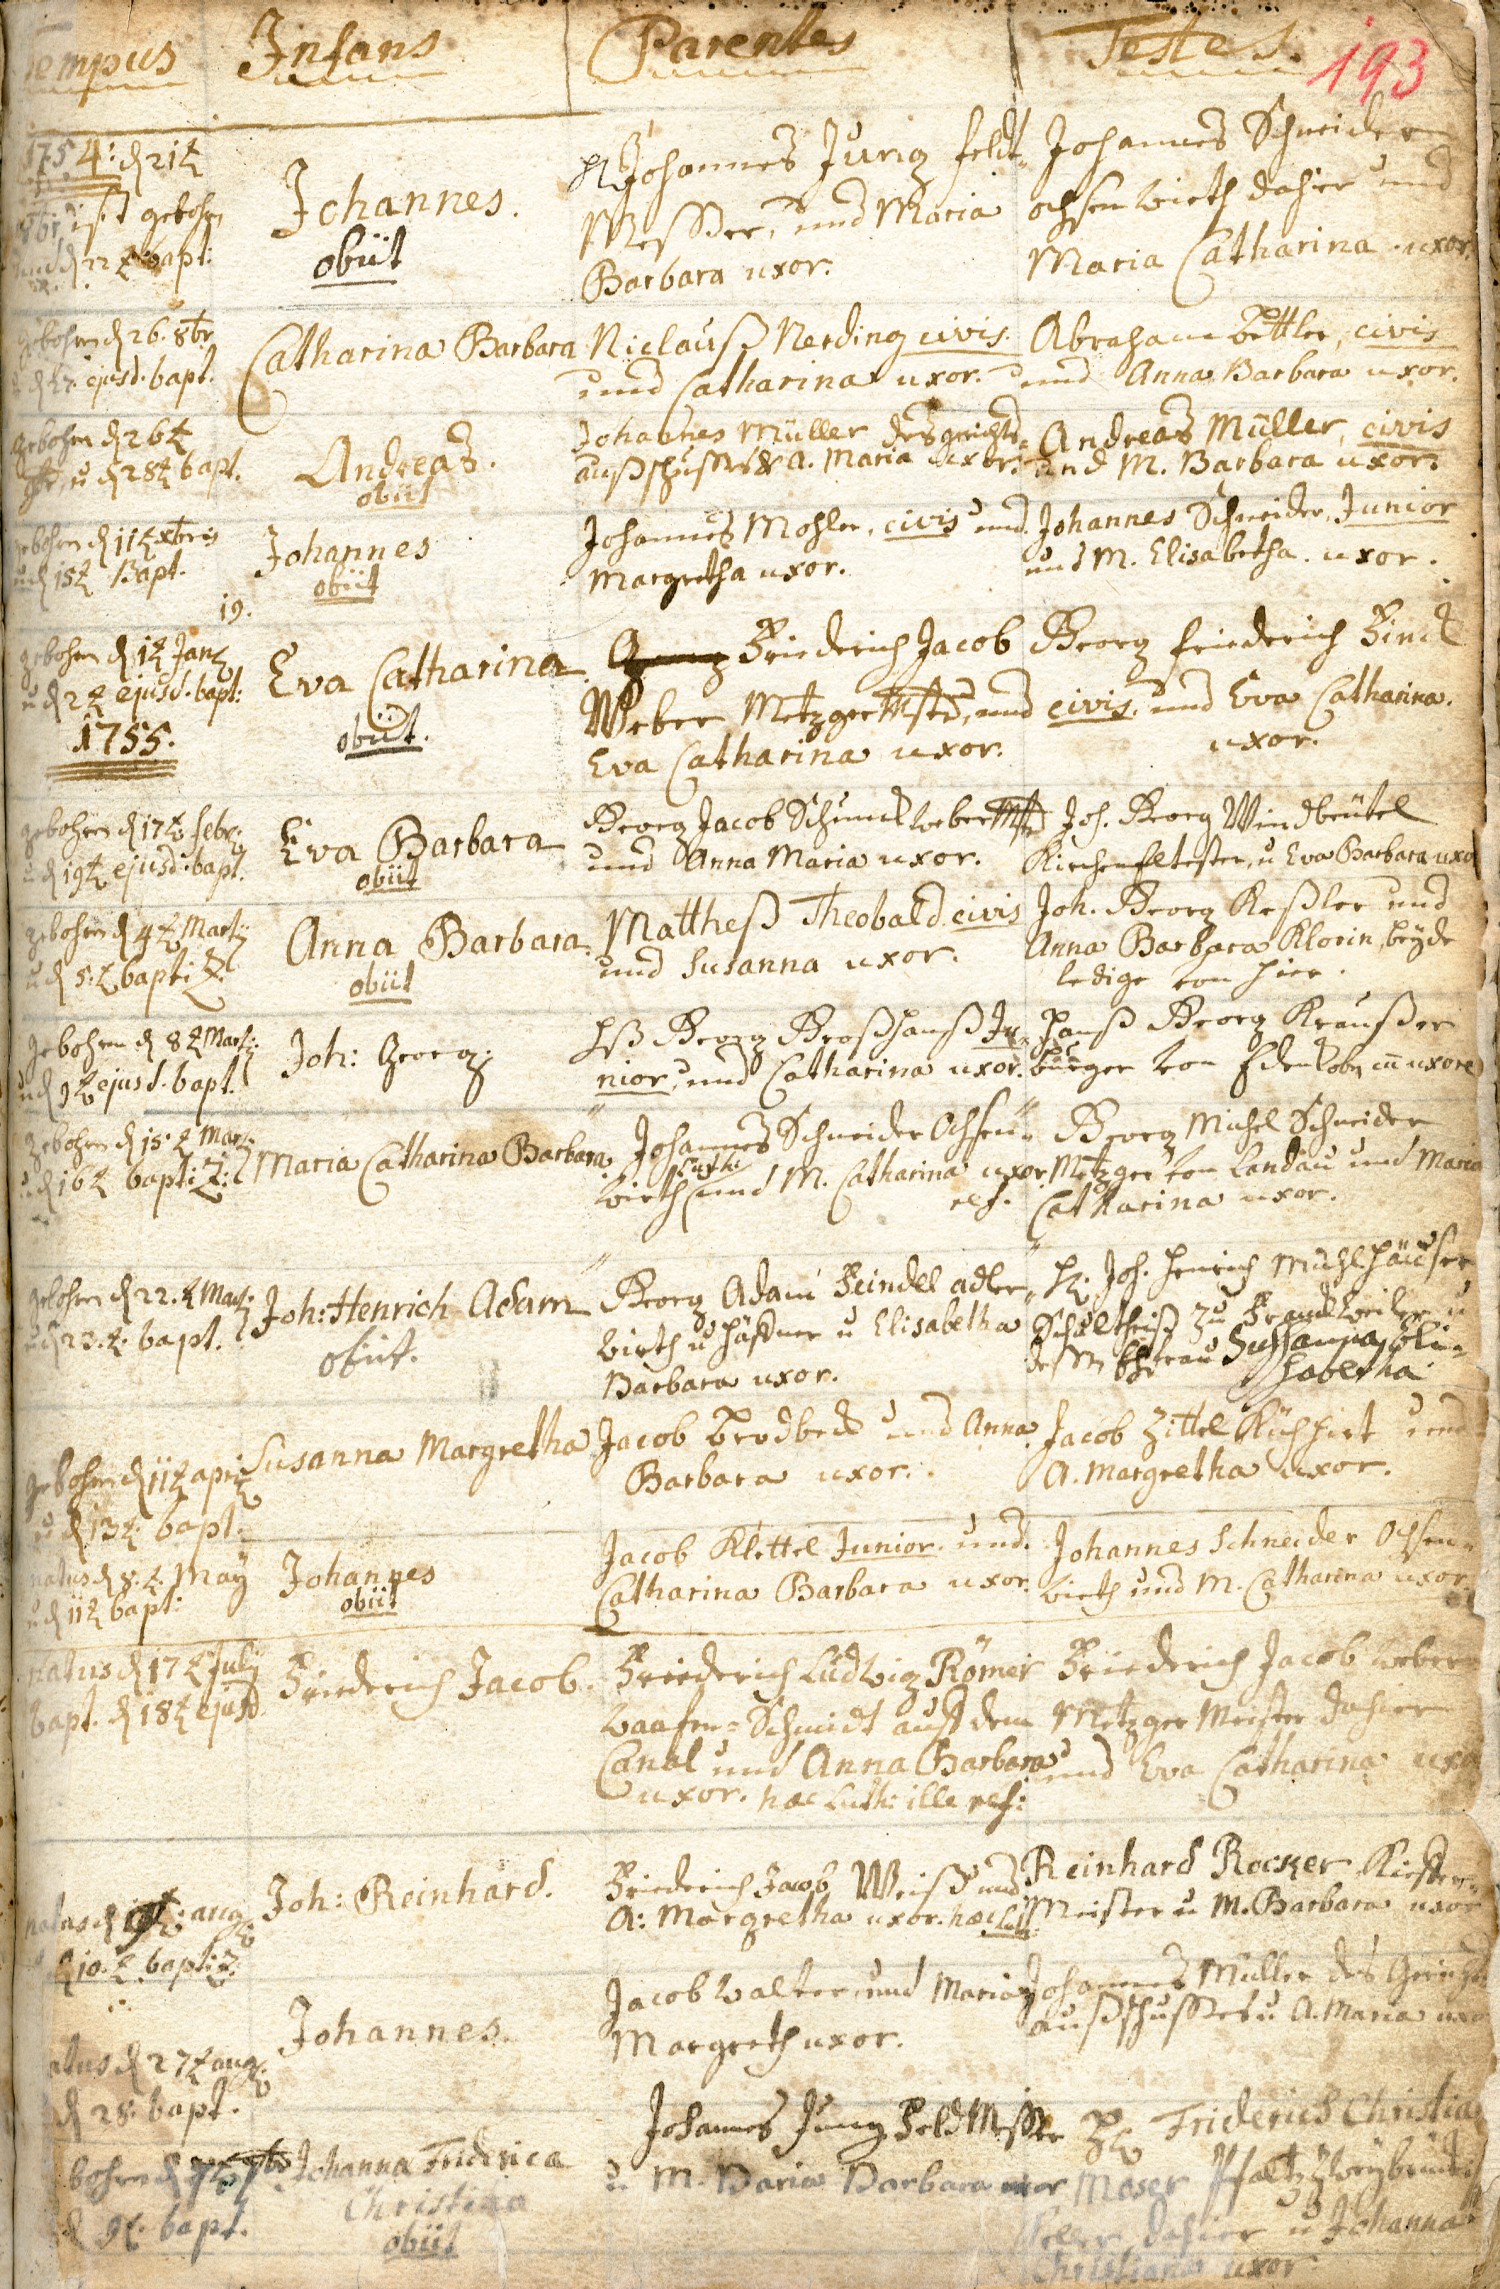 Tempus Infans Parentes Testes. 193
1754: d 21t
8br. ist gebohrn
und d 22t bapt:
Johannes.
obiit
H. Johannes Jung feldt-
Messer, und Maria
Barbara uxor.
Johannes Schneider
ochsenwirth dahier und
Maria Catharina uxor.
gebohren d 26. 8br
ejusd. bapt.
Catharina Barbara
Niclauß Nerding civis.
und Catharina uxor.
Abraham Bettler, civis
und Anna Barbara uxor.
gebohren d 26t
u d 28t bapt.
Andreas.
obiit
Johannes Müller des gerichts-
außschusses & A. Maria uxor.
Andreas Müller, civis
und M. Barbara uxor.
gebohrn d 11t xbris
u d 15t Bapt.
Johannes
obiit
Johannes Mohler, civis und
Margretha uxor.
Johannes Schneider, Junior
und M. Elisabetha. uxor.
19.
gebohrn d 1t Jan
u d 2t ejusd. bapt:
1755.
Eva Catharina
obiit.
Friederich Jacob
Weber Metzger Mstr, und
Eva Catharina uxor.
Georg friederich Finck
civis, und Eva Catharina.
uxor.
gebohren d 17t febr:
u d 19t ejusd. bapt.
Eva Barbara
obiit
Georg Jacob Schunck weber Mstr
und Anna Maria uxor.
Joh. Georg Windbeütel
Kirchen Eltester, u Eva Barbara uxor
gebohrn d 4t Martz
u d 5.t baptiz.
Anna Barbara.
obiit
Mattheß Theobald civis
und Susanna uxor.
Joh. Georg Keßler und
Anna Barbara Klorin, beyde
ledige von hier.
gebohren d 8t Mart:
u d 9t ejusd. bapt.
Joh: Georg:
Hß Georg Großhanß Ju-
nior, und Catharina uxor.
Hanß Georg Kraußer
burger von Edenkoben uxore
gebohren d 15.t Mart:
u d 16t baptiz:
Maria Catharina Barbara
Johannes Schneider Ochsen-
wirth luth: und M. Catharina uxor.
ref.
Georg Michel Schneider
Metzger von Landau und Maria
Catharina uxor.
gebohren d 22.t Mart:
u d 23.t bapt.
Joh: Henrich Adam
obiit.
Georg Adam Feindel adler-
wirth u Häffner u Elisabetha
Barbara uxor.
H. Joh. Henrich Mühlhäüser
Schultheiß zu Franckweiler u
dessen Ehfrau Sussanna Eli-
sabetha
gebohren d 11t april
u d 13t. bapt.
Susanna Margretha
Jacob Brodbeck und Anna
Barbara uxor.
Jacob Zittel Kühhirt und
A. Margretha uxor.
natus d 8.t. May
u d 11t bapt:
Johannes
obiit
Jacob Klettel Junior. und
Catharina Barbara uxor.
Johannes Schneider Ochsen-
wirth und M. Catharina uxor
Natus d 17t July
bapt. d 18t ejusd
Friederich Jacob.
Friederich Ludwig Römer
Waafen-Schmidt auff dem
Canal und Anna Barbara
uxor. haec Luth: ille ref:
Friederich Jacob Weber
Metzger Meister dahier
und Eva Catharina uxor
natus d 9t. aug.
d 10.t. baptiz.
Joh: Reinhard.
Friederich Jacob Weiß und
A: Margretha uxor. haec luth.
Reinhard Rocker Kieffer-
Meister u M. Barbara uxor
natus d 27t aug.
d 28. bapt.
Johannes.
Jacob Walter, und Maria
Margreth uxor.
Johannes Müller des Gerichts
außschusses u A. Maria uxor
bohren d 7t 7br
d 9t. bapt.
Johanna Friderica
Christiana
obiit
Johannes Jung Feld Messer
u M. Maria Barbara uxor
H. Friderich Christian
Moser Pfaltz Zweybrücki
Keller dahier u Johanna
Christiana uxor